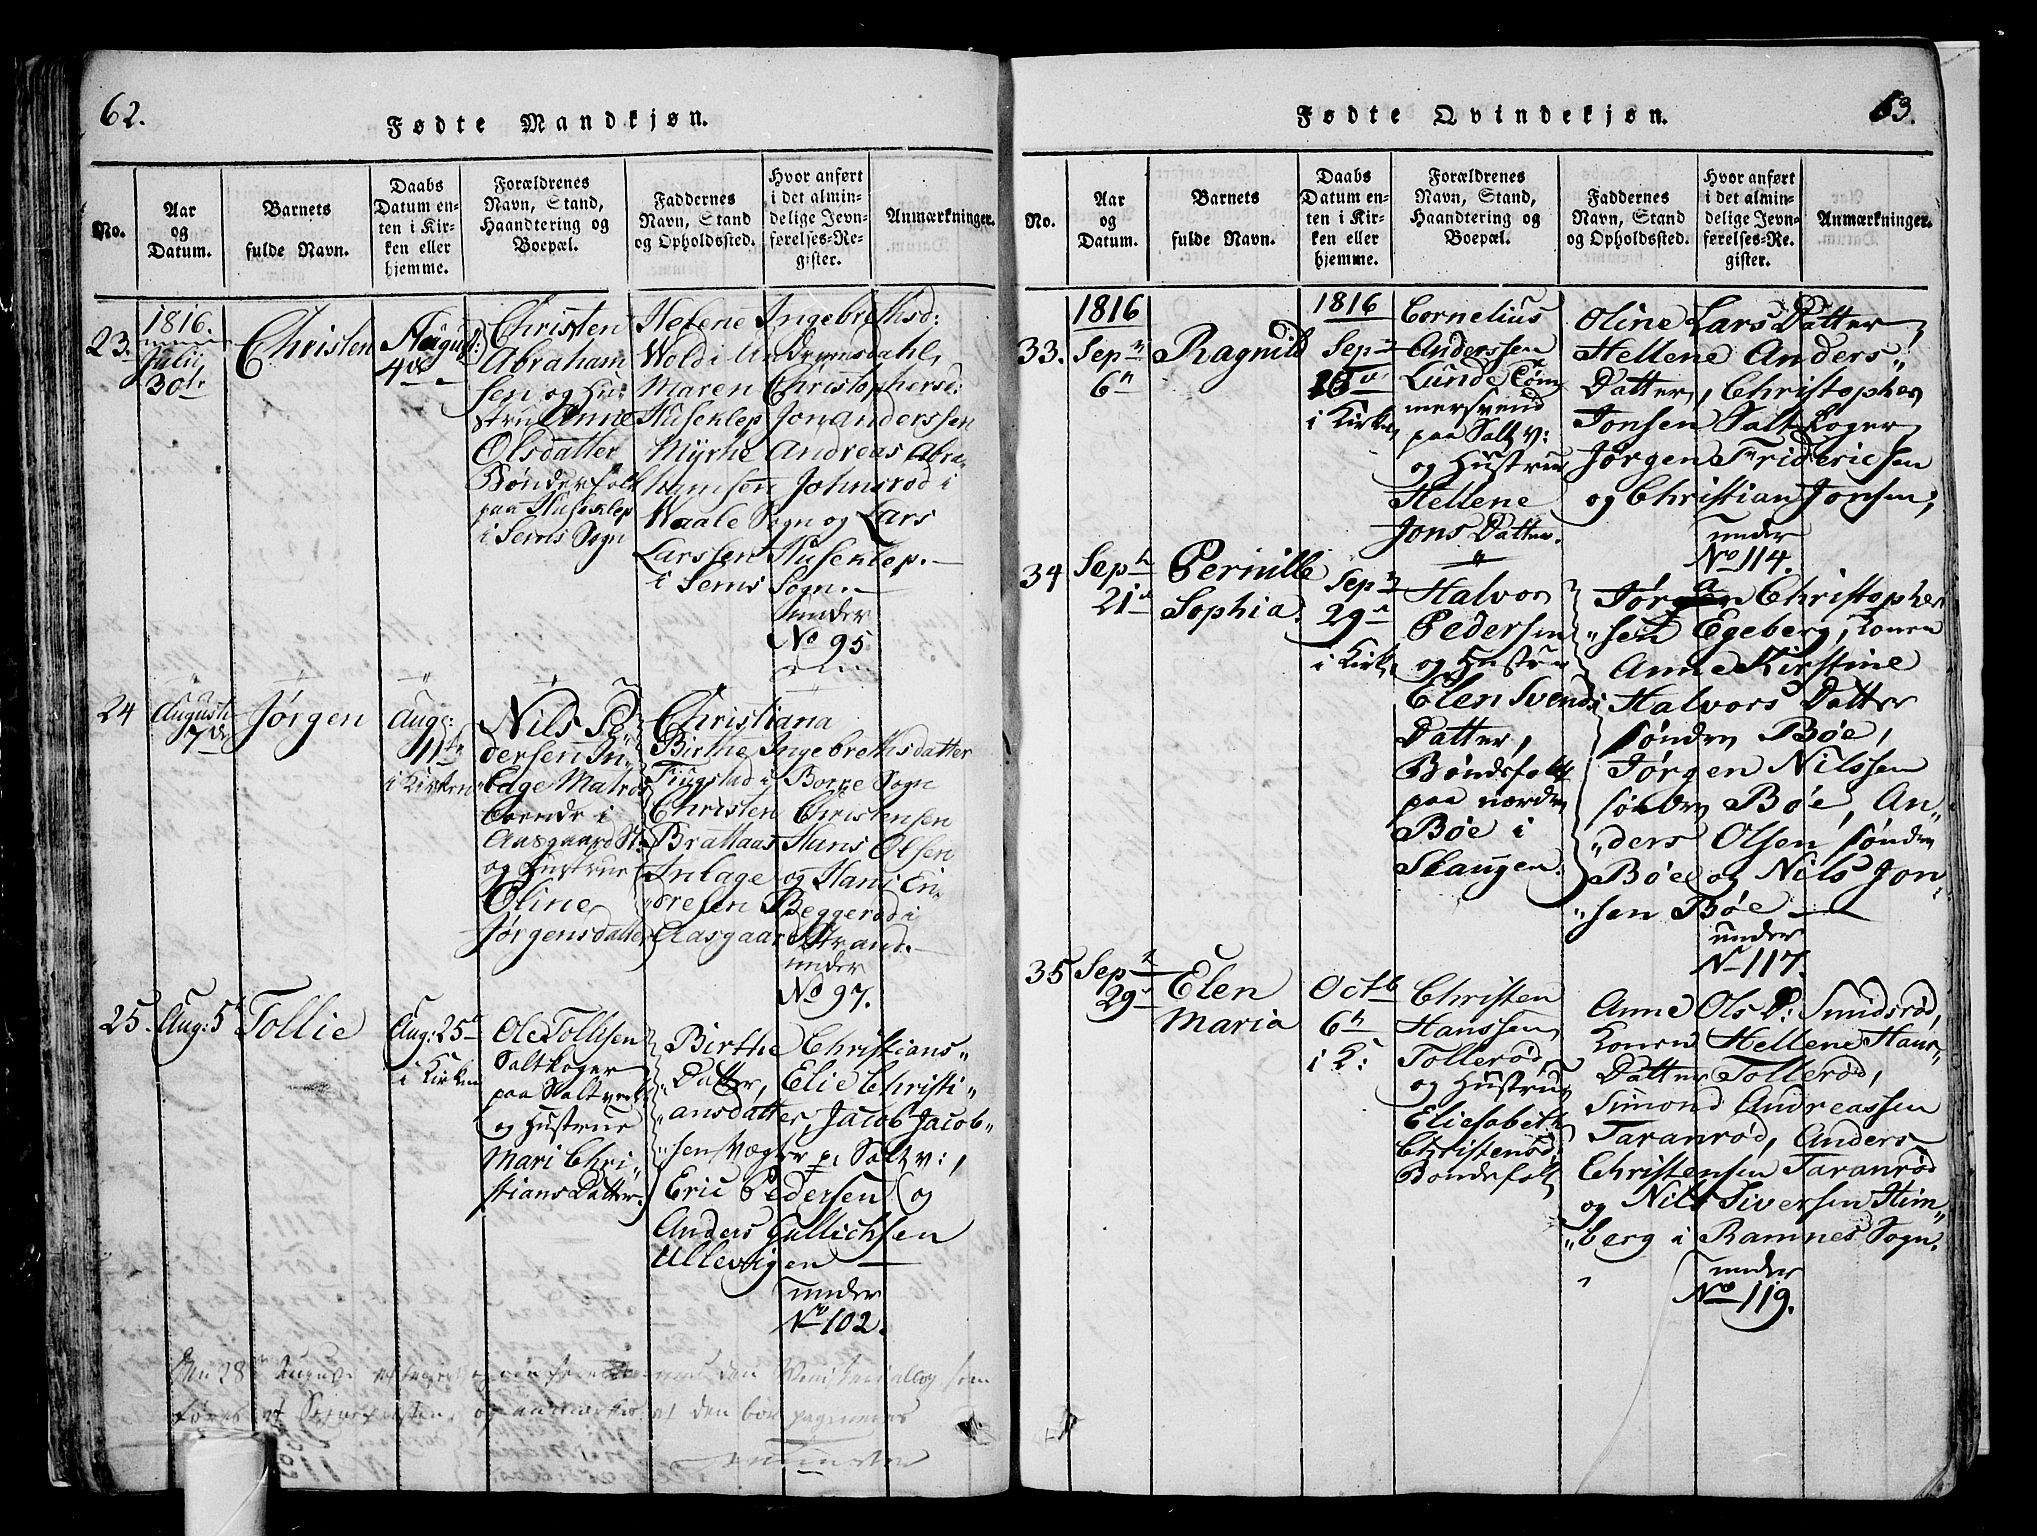 62.
Fødte Mandkjøn.
No.
Aar
og
Datum.
Barnets
fulde Navn.
Daabs
Datum en-
ten i Kir-
ken eller
hjemme.
Forældrenes
Navn, Stand,
Haandtering og
Boepæl.
Faddernes
Navn, Stand
og Opholdssted.
Hvor anført
i det almin-
delige Jevn-
førelses-Re-
gister.
Anmærkninger.
23.
1816.
Julii
30te
Christen
August:
4de
Christen
Abraham
sen og Hu
stru Anne
Olsdatter
Bønderfolk
paa Huseklep
i Sems Sogn
Helene Ingebrethsd:
Wold i Undrumsdahl,
Maren Christophersd:
Huseklep Jon Anderssen
Myrhe Andreas Abra-
hamsen Johnsrød i
Waale Sogn og Lars
Larssen Huseklep.
i Sems Sogn.
under
No 95
24
Augusti
7de
Jørgen
Aug:
11te
i Kirken
Nils Pe
dersen In-
lage Matros
boende i
Aasgaard St:
og Hustrue
Oline
Jørgensdatter
Christiana
Birthe Ingebrethsdatter
Fiugstad i Borre Sogn
Christen Christensen
Brattaas Hans Olsen
Inlage og Hans
Beggerød i
Aasgaard Strand.
under
No 97.
25.
Aug: 5te
Tollie
Aug: 25
i Kirken
Ole Tollisen
Saltkoger
paa Saltverk
og Hustrue
Mari Chri-
stians Datter.
Birthe Christians-
Datter, Elie Christi-
ansdatter, Jacob Jacob-
sen Vægter p: Saltv:,
Eric Pedersen og
Anders Gullichsen
Ullevigen
under
No 102.
den 28
den
den bør pagineres
63.
Fødte Qvindekjøn.
No.
Aar
og
Datum.
Barnets
fulde Navn.
Daabs
Datum en-
ten i Kir-
ken eller
hjemme.
Forældrenes
Navn, Stand,
Haandtering og
Boepæl.
Faddernes
Navn, Stand
og Opholdssted.
Hvor anført
i det almin-
delige Jevn-
førelses-Re.
gister.
Anmærkninger.
33.
1816
Sep
6
Ragnild
1816
Sep
i Kirken
Cornelius
Anderssen
Lunde Tøm
mersvend
paa Saltv:
og Hustrue
Hellene
Jons Datter.
Oline Lars Datter,
Hellene Anders
Datter, Christopher
Jonsen Saltkoger
Jørgen Fridericsen
og Christian Jonsen,
under
No 114.
34
Sep
21
Pernille
Sophia.
Sep
29
i Kirken
Halvor
Pedersen
og Hustrue
Elen Svends
Datter,
Bøndsfolk
paa nordre
Bøe i
Slaugen.
Jørgen Christopher
sen Egeberg, Konen
Anne Kirstine
Halvors Datter
søndre Bøe,
Jørgen Nilssen
søndre Bøe, An-
ders Olsen søndre
Bøe og Nils Jon-
sen Bøe
under
No 117.
35
Sep
29
Elen
Maria
Octb
6
i K:
Christen
Hanssen
Tollerød,
og Hustrue
Eliesabeth
Christensd:
Bondefolk
Anne Ols D: Smidsrød,
Konen Hellene Hans
Datter Tollerød,
Simond Andreassen
Taranrød, Anders
Christensen Taranrød
og Nils Siversen Him-
berg i Ramnes Sogn.
under
No 119.